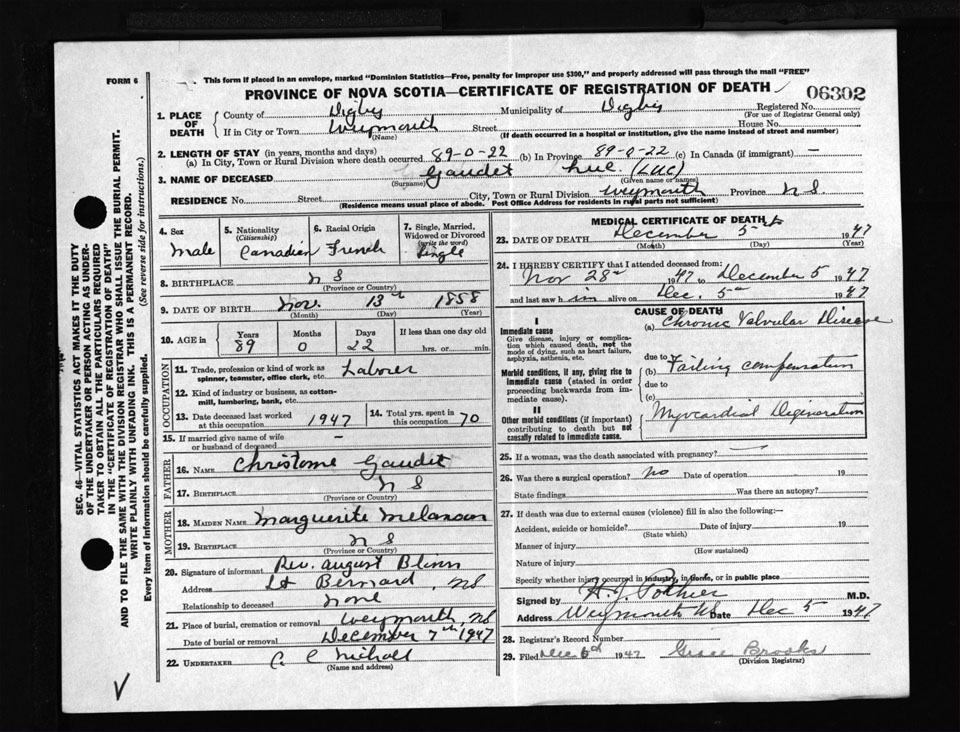 FORM 6
This form if placed in an envelope, marked "Dominion Statistics—Free, penalty for improper use $300," and properly addressed will pass through the mail "FREE"
PROVINCE OF NOVA SCOTIA—CERTIFICATE OF REGISTRATION OF DEATH
06302
1. PLACE OF DEATH
County of Digby Municipality of Digby Registered No.
(For use of Registrar General only)
If in City or Town Weymouth Street House No.
(Name) (If death occurred in a hospital or institution, give the name instead of street and number)
2. LENGTH OF STAY (in years, months and days)
(a) In City, Town or Rural Division where death occurred 89-0-22 (b) In Province 89-0-22 (c) In Canada (if immigrant) —
3. NAME OF DECEASED Gaudet Luc (Luc)
(Surname) (Given name or names)
RESIDENCE No. Street City, Town or Rural Division Weymouth Province N S
(Residence means usual place of abode. Post Office Address for residents in rural parts not sufficient)
4. Sex
Male
5. Nationality
(Citizenship)
Canadian
6. Racial Origin
French
7. Single, Married, Widowed or Divorced
(write the word)
Single
8. BIRTHPLACE N S
(Province or Country)
9. DATE OF BIRTH Nov. 13th 1858
(Month) (Day) (Year)
10. AGE in
Years Months Days If less than one day old
89 0 22 hrs. or min.
OCCUPATION
11. Trade, profession or kind of work as spinner, teamster, office clerk, etc. Laborer
12. Kind of industry or business, as cotton-mill, lumbering, bank, etc.
13. Date deceased last worked at this occupation 1947
14. Total yrs. spent in this occupation 70
15. If married give name of wife or husband of deceased —
FATHER
16. NAME Christome Gaudet
17. BIRTHPLACE N S
(Province or Country)
MOTHER
18. MAIDEN NAME Marguerite Melanson
19. BIRTHPLACE N S
(Province or Country)
20. Signature of informant Rev. August Blinn
Address St Bernard, NS
Relationship to deceased none
21. Place of burial, cremation or removal Weymouth, NS
Date of burial or removal December 7th 1947
22. UNDERTAKER C. C Nicholl
(Name and address)
MEDICAL CERTIFICATE OF DEATH
23. DATE OF DEATH December 5th 1947
(Month) (Day) (Year)
24. I HEREBY CERTIFY that I attended deceased from:
Nov 28th 1947 to December 5 1947
and last saw him alive on Dec. 5th 1947
CAUSE OF DEATH
I
Immediate cause
Give disease, injury or complication which caused death, not the mode of dying, such as heart failure, asphyxia, asthenia, etc.
(a) Chronic Valvular Disease
due to
Morbid conditions, if any, giving rise to immediate cause (stated in order proceeding backwards from immediate cause).
(b) Failing compensation
due to
(c)
II
Other morbid conditions (if important) contributing to death but not causally related to immediate cause.
Myocardial Degeneration
25. If a woman, was the death associated with pregnancy? —
26. Was there a surgical operation? No Date of operation 19
State findings Was there an autopsy?
27. If death was due to external causes (violence) fill in also the following:—
Accident, suicide or homicide? Date of injury 19
(State which)
Manner of injury
(How sustained)
Nature of injury
Specify whether injury occurred in industry, in home, or in public place
Signed by H. J. Pothier M.D.
Address Weymouth NS Date Dec 5 1947
28. Registrar's Record Number
29. Filed Dec 6th 1947 Grace Brooks
(Division Registrar)
SEC. 46—VITAL STATISTICS ACT MAKES IT THE DUTY
OF THE UNDERTAKER OR PERSON ACTING AS UNDER-
TAKER TO OBTAIN ALL THE PARTICULARS REQUIRED
IN THE "CERTIFICATE OF REGISTRATION OF DEATH"
AND TO FILE THE SAME WITH THE DIVISION REGISTRAR WHO SHALL ISSUE THE BURIAL PERMIT.
WRITE PLAINLY WITH UNFADING INK. THIS IS A PERMANENT RECORD.
Every item of information should be carefully supplied. (See reverse side for instructions.)